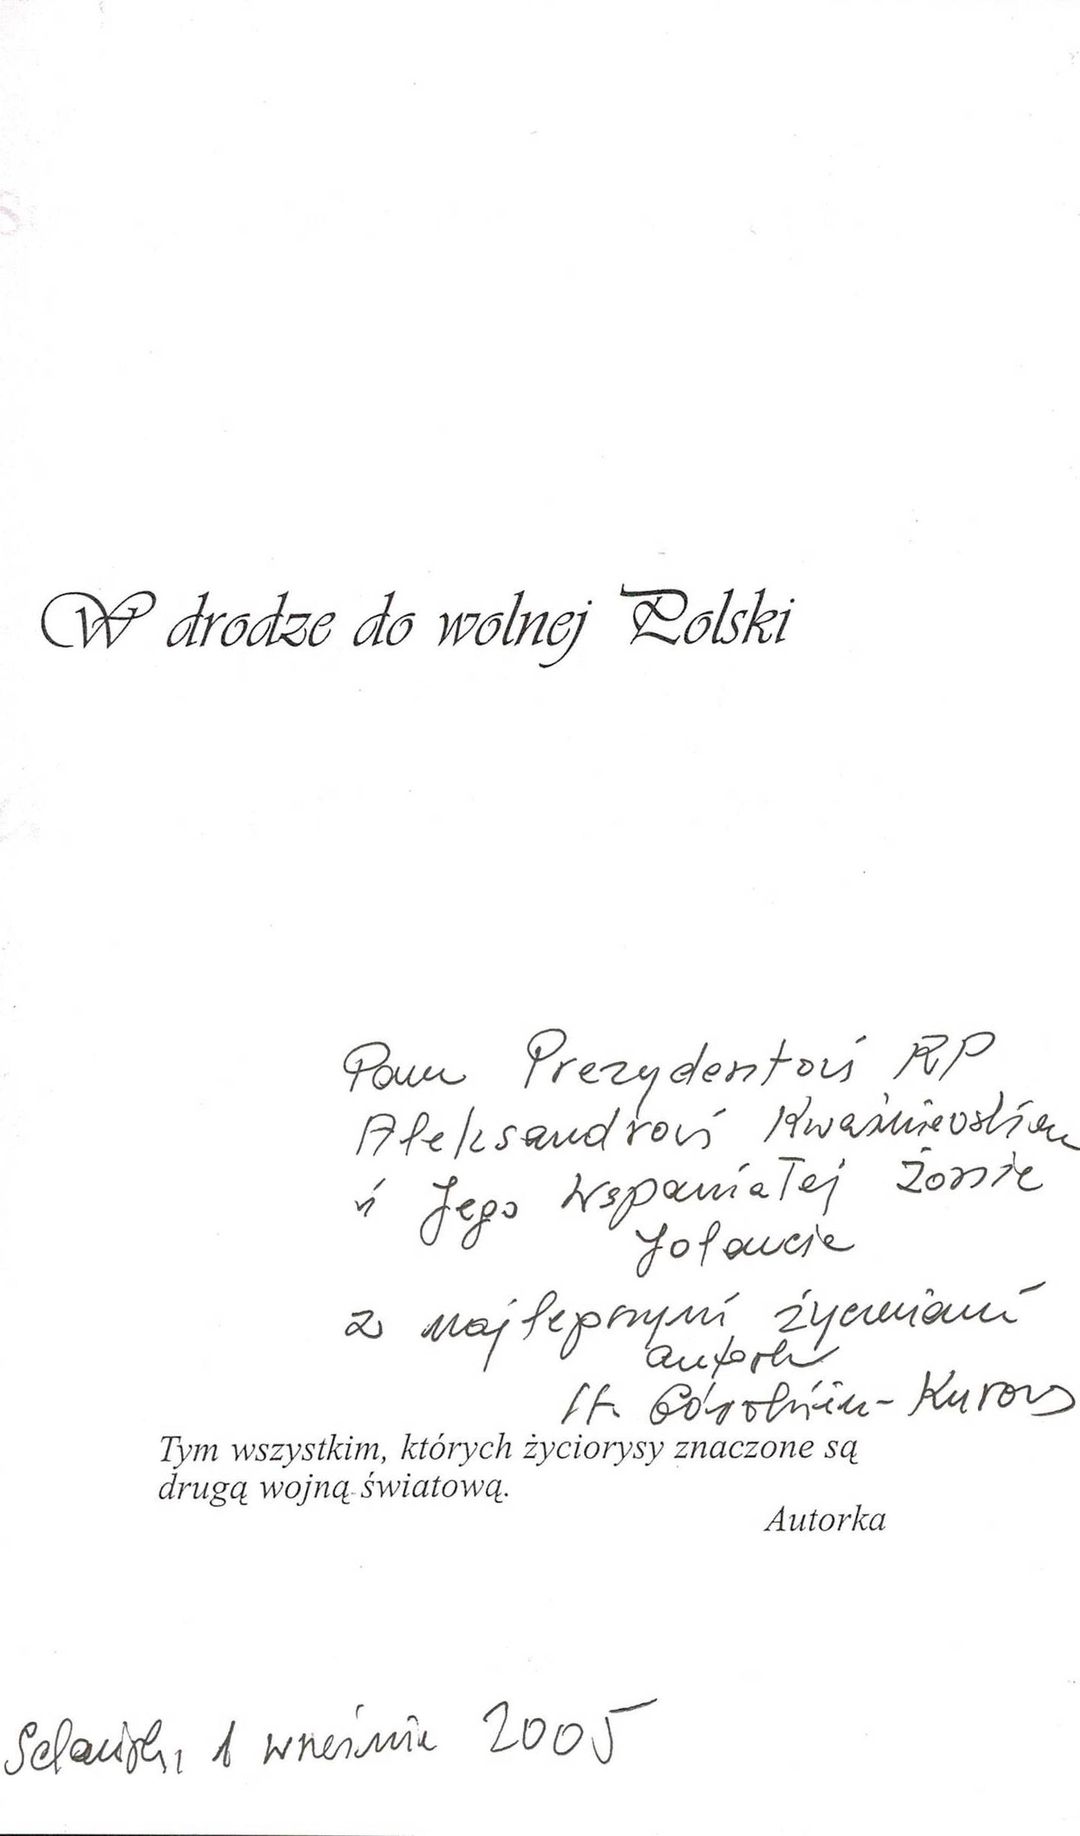 W drodze do wolnej Polski
Panu Prezydentowi RP
Aleksandrowi Kwaśniewskiemu
i Jego Wspaniałej Żonie
Jolancie
z najlepszymi życzeniami
autorka
Kurowska
Tym wszystkim, których życiorysy znaczone są
drugą wojną światową.
Autorka
1 września 2005